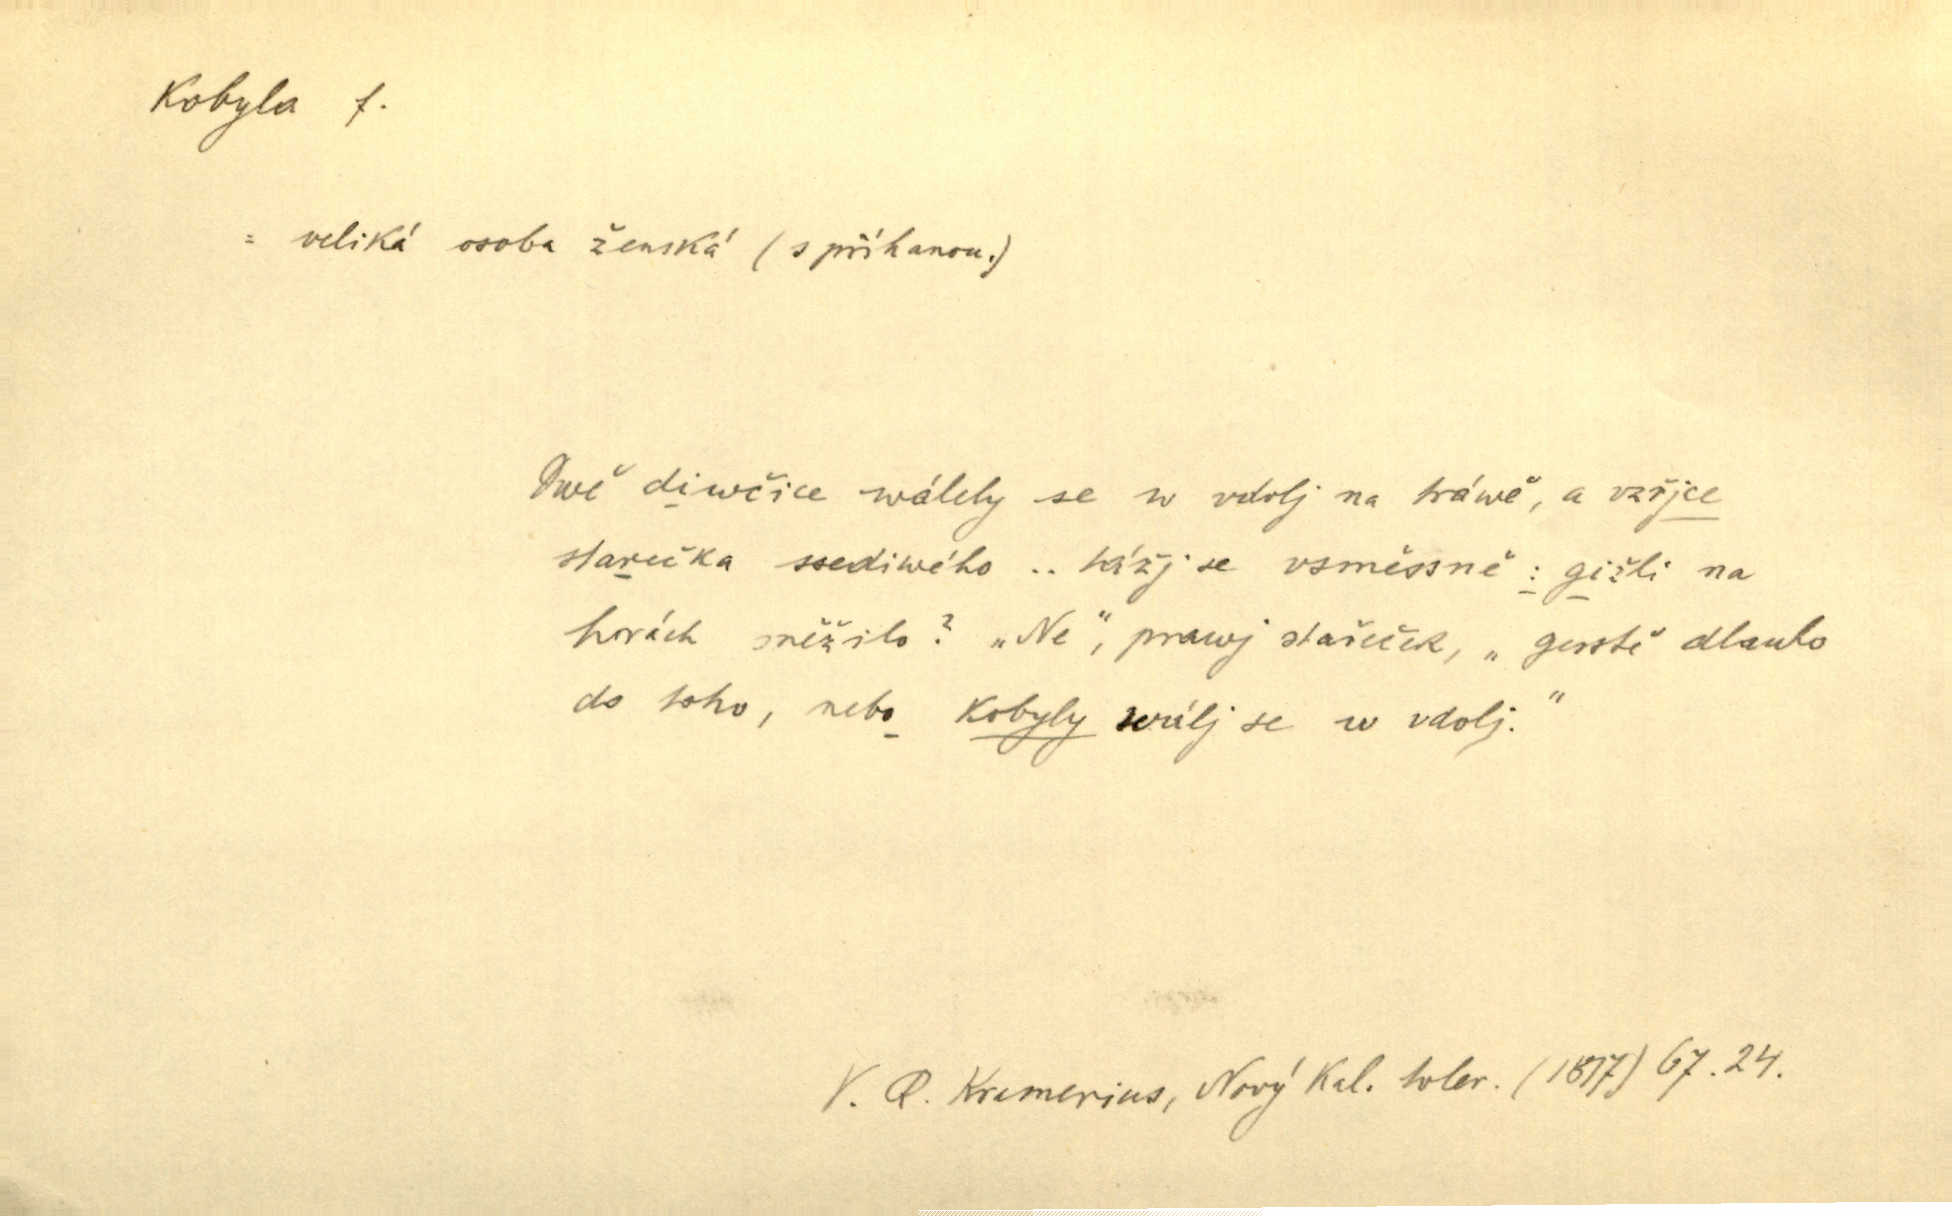 Kobyla f.
= veliká osoba ženská (s příhanou.)
Dwě diwčice wálely se w vdolj na tráwě, a vzřjce
starečka ssediwého .. tážj se vsměssně : gižli na
horách sněžilo? „Ne“, prawj stařeček, „gesstě dlauho
do toho, nebo Kobyly wálj se w vdolj.“
V. R. Kramerius, Nový Kal. toler. (1817) 67. 24.